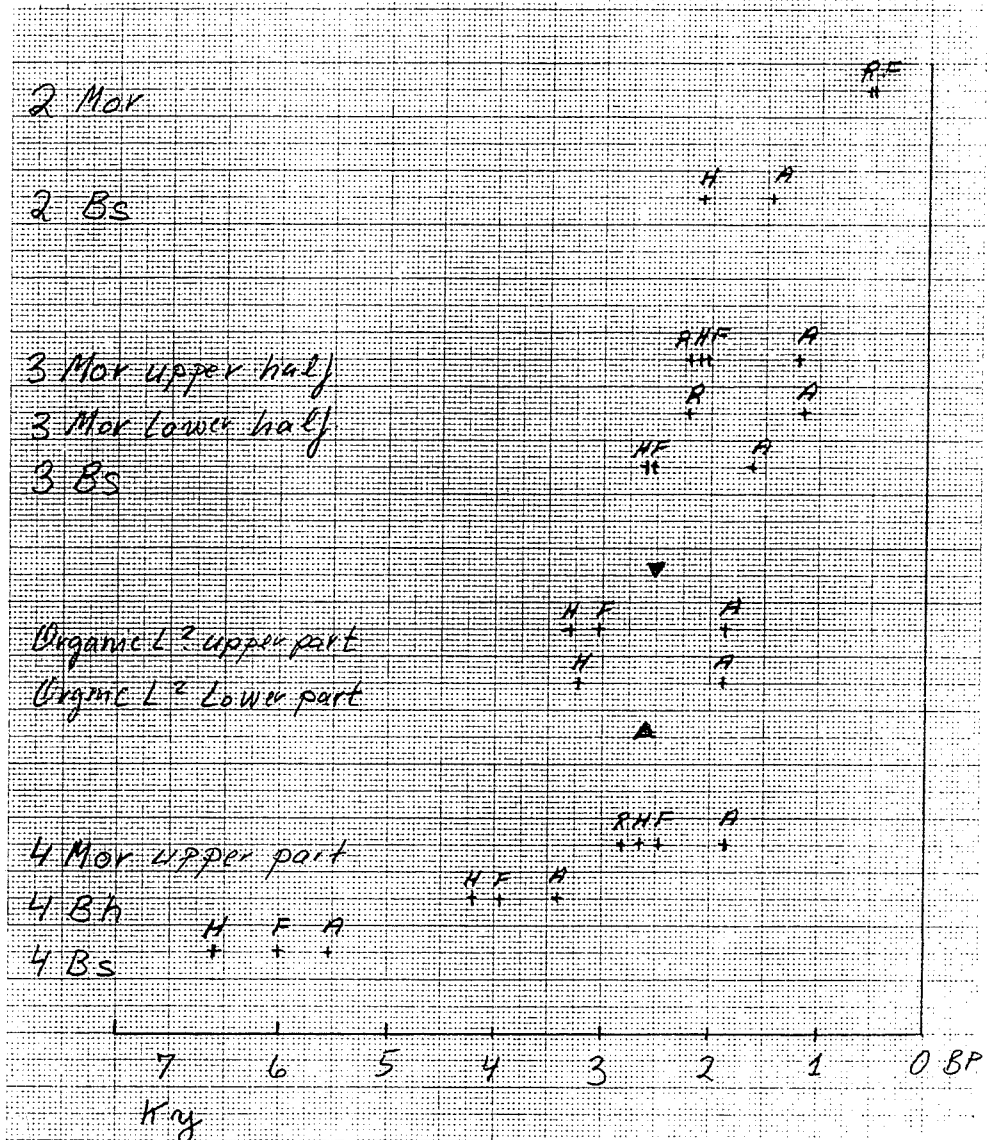 R F
2 Mor
H A
2 Bs
R H F A
3 Mor upper half
R A
3 Mor Lower half
H F A
3 Bs
H F A
Organic L? upper part
H A
Orgnic L? Lower part
R H F A
4 Mor upper part
H F A
4 Bh
H F A
4 Bs
7 6 5 4 3 2 1 0 BP
Ky